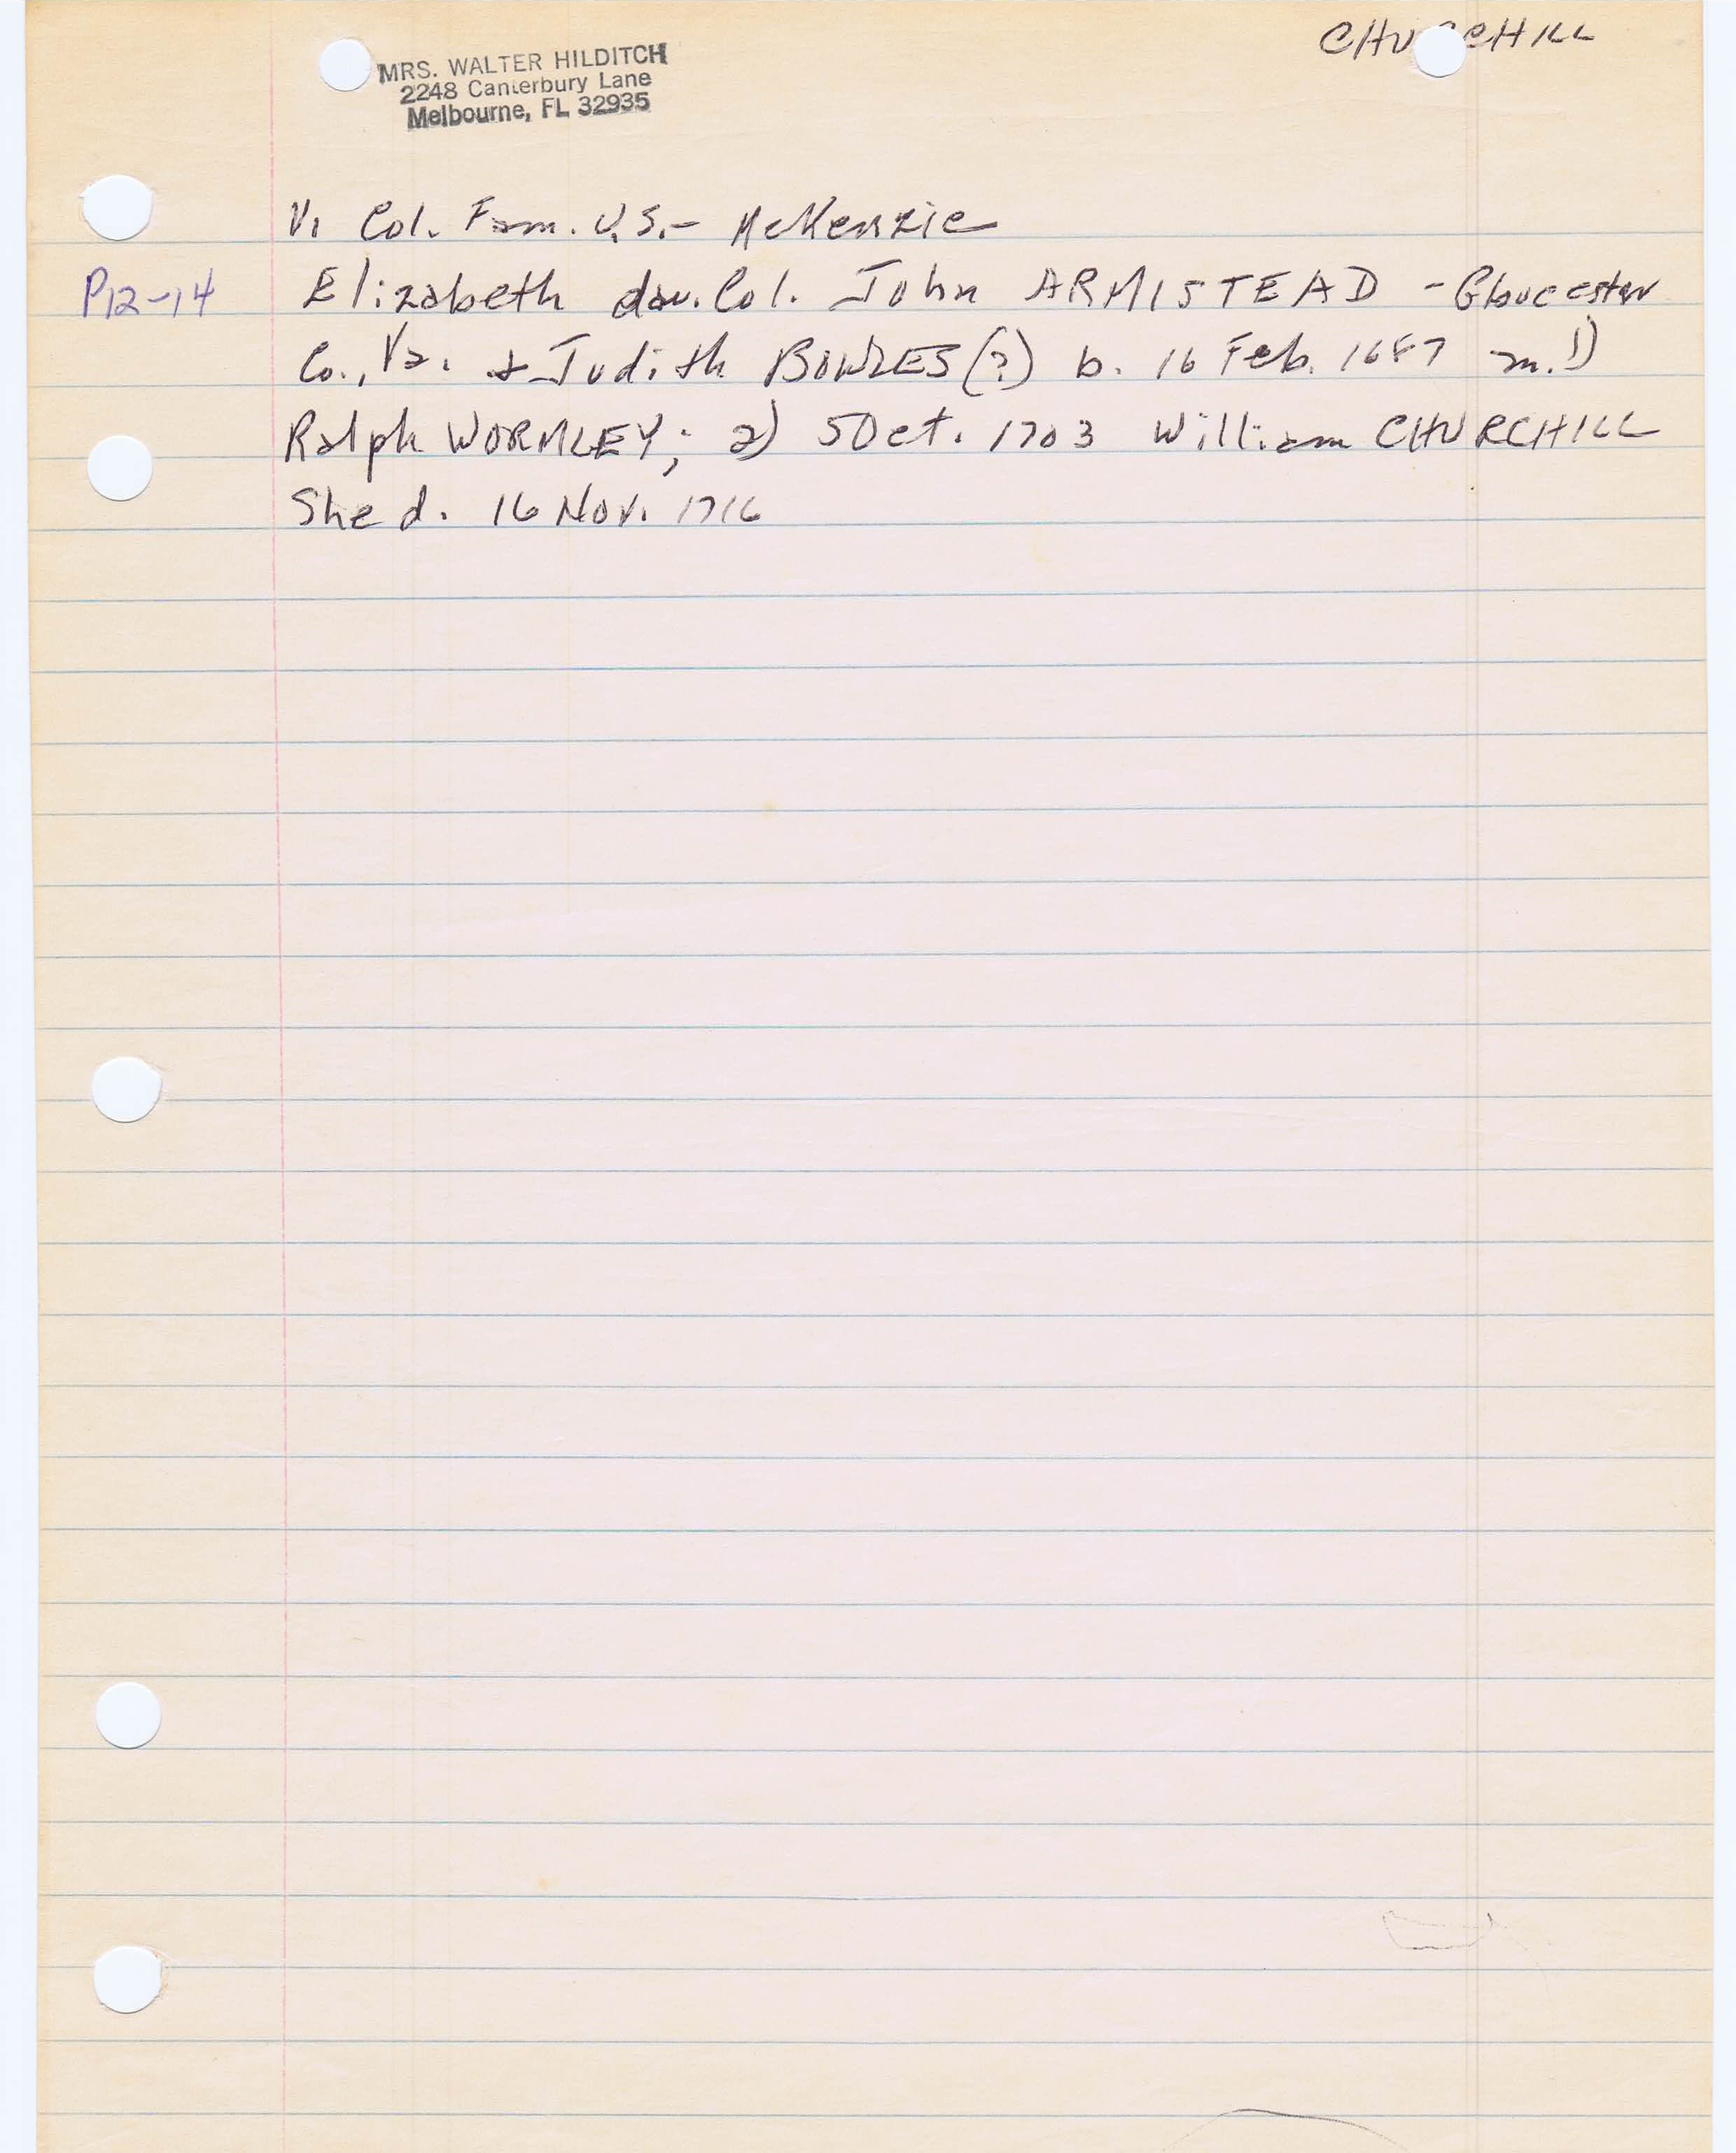 CHU CHILL
MRS. WALTER HILDITCH
2248 Canterbury Lane
Melbourne, FL 32935
V. Col. Fam. U.S. - McKenzie
P12-14 Elizabeth dau. Col. John ARMISTEAD - Gloucester
Co., Va. & Judith BOWLES (?) b. 16 Feb. 1687 m. 1)
Ralph WORMLEY; 2) 5 Oct. 1703 William CHURCHILL
She d. 16 Nov. 1716